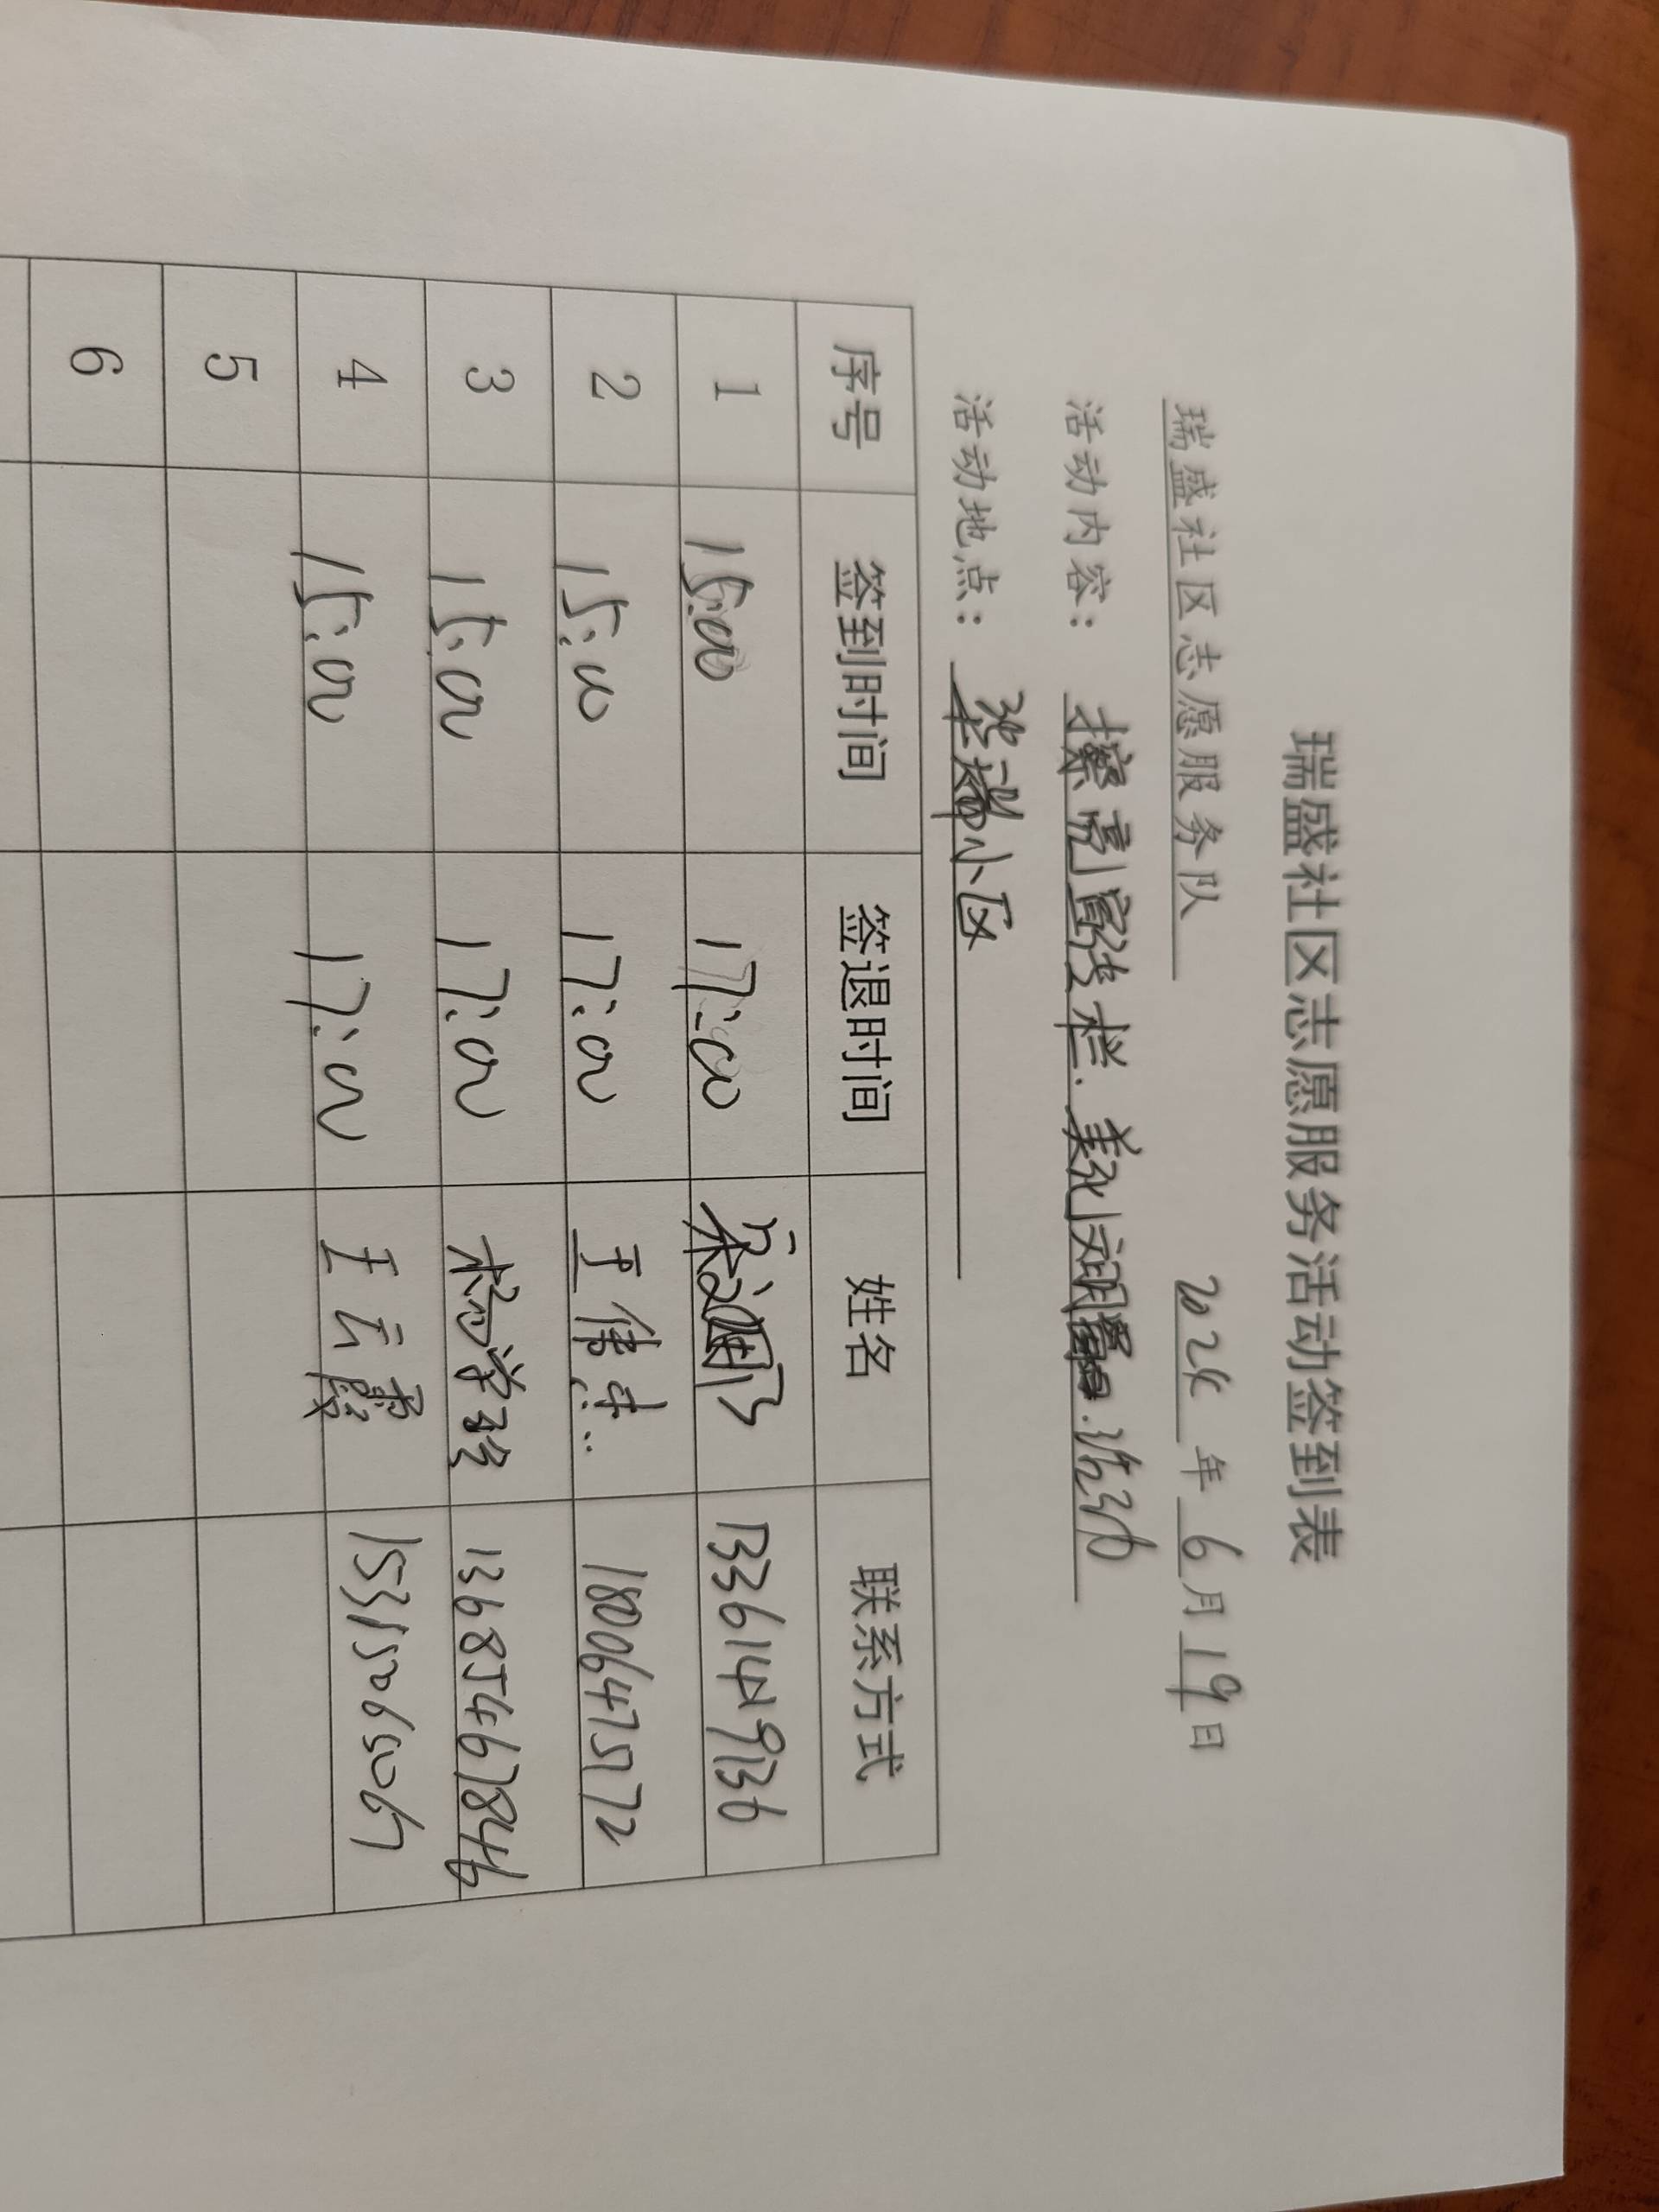 瑞盛社区志愿服务活动签到表
瑞盛社区志愿服务队 2024年6月19日
活动内容：擦亮宣传栏.美化文明 活动
活动地点：华瑞小区
序号 签到时间 签退时间 姓名 联系方式
1 15:00 17:00 13361414936
2 15:00 17:00 王伟 18006475172
3 15:00 17:00 13685467846
4 15:00 17:00 王云霞 15315206067
5
6